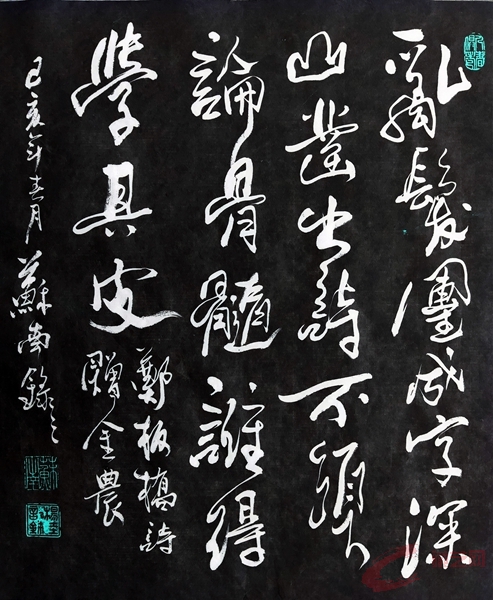 亂髮團成字深
山鑿出詩不須
論骨髓誰得
學其皮
鄭板橋詩
贈金農
己亥年春月蘇南錄之